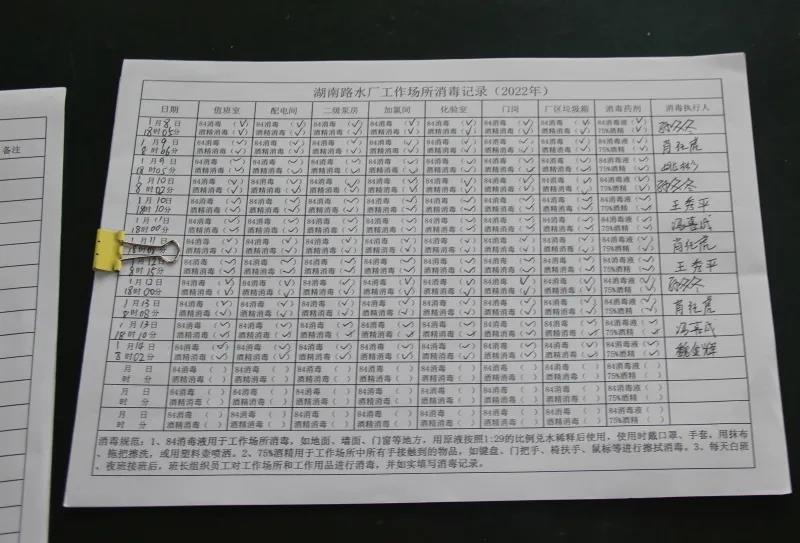 备注
湖南路水厂工作场所消毒记录（2022年）
日期 值班室 配电间 二级泵房 加氯间 化验室 门岗 厂区垃圾箱 消毒药剂 消毒执行人
1月8日 84消毒（✓） 84消毒（✓） 84消毒（✓） 84消毒（✓） 84消毒（✓） 84消毒（✓） 84消毒（✓） 84消毒液（✓）
18时05分 酒精消毒（✓） 酒精消毒（✓） 酒精消毒（✓） 酒精消毒（✓） 酒精消毒（✓） 酒精消毒（✓） 酒精消毒（✓） 75%酒精（✓）
1月9日 84消毒（✓） 84消毒（✓） 84消毒（✓） 84消毒（✓） 84消毒（✓） 84消毒（✓） 84消毒（✓） 84消毒液（✓）
8时06分 酒精消毒（✓） 酒精消毒（✓） 酒精消毒（✓） 酒精消毒（✓） 酒精消毒（✓） 酒精消毒（✓） 酒精消毒（✓） 75%酒精（✓）
1月9日 84消毒（✓） 84消毒（✓） 84消毒（✓） 84消毒（✓） 84消毒（✓） 84消毒（✓） 84消毒（✓） 84消毒液（✓）
18时05分 酒精消毒（✓） 酒精消毒（✓） 酒精消毒（✓） 酒精消毒（✓） 酒精消毒（✓） 酒精消毒（✓） 酒精消毒（✓） 75%酒精（✓）
1月10日 84消毒（✓） 84消毒（✓） 84消毒（✓） 84消毒（✓） 84消毒（✓） 84消毒（✓） 84消毒（✓） 84消毒液（✓）
8时02分 酒精消毒（✓） 酒精消毒（✓） 酒精消毒（✓） 酒精消毒（✓） 酒精消毒（✓） 酒精消毒（✓） 酒精消毒（✓） 75%酒精（✓）
1月10日 84消毒（✓） 84消毒（✓） 84消毒（✓） 84消毒（✓） 84消毒（✓） 84消毒（✓） 84消毒（✓） 84消毒液（✓） 王秀平
18时10分 酒精消毒（✓） 酒精消毒（✓） 酒精消毒（✓） 酒精消毒（✓） 酒精消毒（✓） 酒精消毒（✓） 酒精消毒（✓） 75%酒精（✓）
1月11日 84消毒（✓） 84消毒（✓） 84消毒（✓） 84消毒（✓） 84消毒（✓） 84消毒（✓） 84消毒（✓） 84消毒液（✓）
18时00分 酒精消毒（✓） 酒精消毒（✓） 酒精消毒（✓） 酒精消毒（✓） 酒精消毒（✓） 酒精消毒（✓） 酒精消毒（✓） 75%酒精（✓）
1月11日 84消毒（✓） 84消毒（✓） 84消毒（✓） 84消毒（✓） 84消毒（✓） 84消毒（✓） 84消毒（✓） 84消毒液（✓）
酒精消毒（✓） 酒精消毒（✓） 酒精消毒（✓） 酒精消毒（✓） 酒精消毒（✓） 酒精消毒（✓） 酒精消毒（✓） 75%酒精（✓）
1月12日 84消毒（✓） 84消毒（✓） 84消毒（✓） 84消毒（✓） 84消毒（✓） 84消毒（✓） 84消毒（✓） 84消毒液（✓） 王秀平
8时15分 酒精消毒（✓） 酒精消毒（✓） 酒精消毒（✓） 酒精消毒（✓） 酒精消毒（✓） 酒精消毒（✓） 酒精消毒（✓） 75%酒精（✓）
1月12日 84消毒（✓） 84消毒（✓） 84消毒（✓） 84消毒（✓） 84消毒（✓） 84消毒（✓） 84消毒（✓） 84消毒液（✓）
18时00分 酒精消毒（✓） 酒精消毒（✓） 酒精消毒（✓） 酒精消毒（✓） 酒精消毒（✓） 酒精消毒（✓） 酒精消毒（✓） 75%酒精（✓）
1月13日 84消毒（✓） 84消毒（✓） 84消毒（✓） 84消毒（✓） 84消毒（✓） 84消毒（✓） 84消毒（✓） 84消毒液（✓）
8时03分 酒精消毒（✓） 酒精消毒（✓） 酒精消毒（✓） 酒精消毒（✓） 酒精消毒（✓） 酒精消毒（✓） 酒精消毒（✓） 75%酒精（✓）
1月13日 84消毒（✓） 84消毒（✓） 84消毒（✓） 84消毒（✓） 84消毒（✓） 84消毒（✓） 84消毒（✓） 84消毒液（✓）
18时10分 酒精消毒（✓） 酒精消毒（✓） 酒精消毒（✓） 酒精消毒（✓） 酒精消毒（✓） 酒精消毒（✓） 酒精消毒（✓） 75%酒精（✓）
1月14日 84消毒（✓） 84消毒（✓） 84消毒（✓） 84消毒（✓） 84消毒（✓） 84消毒（✓） 84消毒（✓） 84消毒液（✓） 魏金辉
8时02分 酒精消毒（✓） 酒精消毒（✓） 酒精消毒（✓） 酒精消毒（✓） 酒精消毒（✓） 酒精消毒（✓） 酒精消毒（✓） 75%酒精（✓）
月 日 84消毒（ ） 84消毒（ ） 84消毒（ ） 84消毒（ ） 84消毒（ ） 84消毒（ ） 84消毒（ ） 84消毒液（ ）
时 分 酒精消毒（ ） 酒精消毒（ ） 酒精消毒（ ） 酒精消毒（ ） 酒精消毒（ ） 酒精消毒（ ） 酒精消毒（ ） 75%酒精（ ）
月 日 84消毒（ ） 84消毒（ ） 84消毒（ ） 84消毒（ ） 84消毒（ ） 84消毒（ ） 84消毒（ ） 84消毒液（ ）
时 分 酒精消毒（ ） 酒精消毒（ ） 酒精消毒（ ） 酒精消毒（ ） 酒精消毒（ ） 酒精消毒（ ） 酒精消毒（ ） 75%酒精（ ）
月 日 84消毒（ ） 84消毒（ ） 84消毒（ ） 84消毒（ ） 84消毒（ ） 84消毒（ ） 84消毒（ ） 84消毒液（ ）
时 分 酒精消毒（ ） 酒精消毒（ ） 酒精消毒（ ） 酒精消毒（ ） 酒精消毒（ ） 酒精消毒（ ） 酒精消毒（ ） 75%酒精（ ）
消毒规范：1、84消毒液用于工作场所消毒，如地面、墙面、门窗等地方，用原液按照1:29的比例兑水稀释后使用，使用时戴口罩、手套，用抹布
、拖把擦洗，或用塑料壶喷洒。2、75%酒精用于工作场所中所有手接触到的物品，如键盘、门把手、椅扶手、鼠标等进行擦拭消毒。3、每天白班
、夜班接班后，班长组织员工对工作场所和工作用品进行消毒，并如实填写消毒记录。